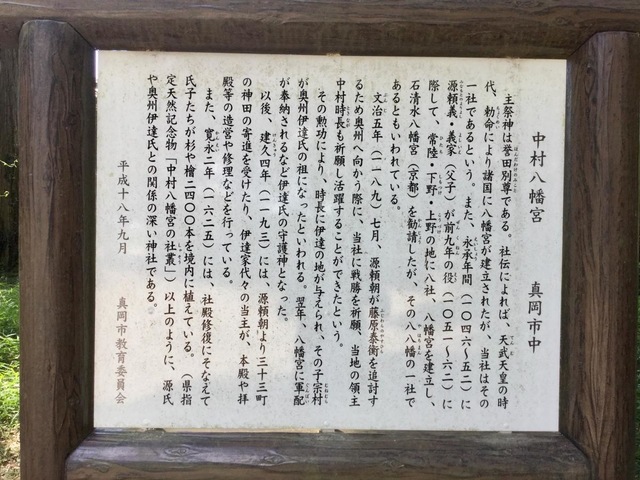 中村八幡宮　真岡市中
主祭神は誉田別尊である。社伝によれば、天武天皇の時
代、勅命により諸国に八幡宮が建立されたが、当社はその
一社であるという。また、永承年間（一〇四六〜五二）に
源頼義・義家（父子）が前九年の役（一〇五一〜六二）に
際して、常陸・下野・上野の地に八社、八幡宮を建立し、
石清水八幡宮（京都）を勧請したが、その八八幡の一社で
あるともいわれている。
文治五年（一一八九）七月、源頼朝が藤原泰衡を追討す
るため奥州へ向かう際に、当社に戦勝を祈願、当地の領主
中村時長も祈願し活躍することができたという。
その勲功により、時長に伊達の地が与えられ、その子宗村
が奥州伊達氏の祖になったといわれる。翌年、八幡宮に軍配
が奉納されるなど伊達氏の守護神となった。
以後、建久四年（一一九三）には、源頼朝より三十三町
の神田の寄進を受けたり、伊達家代々の当主が、本殿や拝
殿等の造営や修理などを行っている。
また、寛永二年（一六二五）には、社殿修復にそなえて
氏子たちが杉や檜二四〇〇本を境内に植えている。（県指
定天然記念物「中村八幡宮の社叢」）以上のように、源氏
や奥州伊達氏との関係の深い神社である。
平成十八年九月　真岡市教育委員会